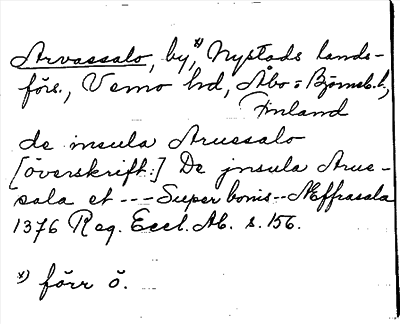 Arvassalo, by,*) Nystads lands-
förs., Vemo hd, Åbo = Björneb. l.,
Finland
de insula Aruessalo
[överskrift:] De jnsula Arue-
sala et --- Super bonis -- Næffrasala
1376 Reg. Eccl. Ab. s. 156.
*) förr ö.